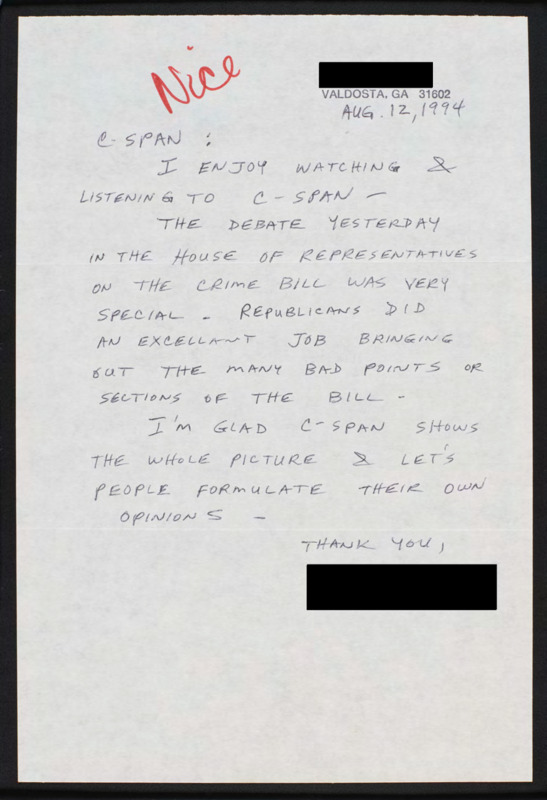 Nice
VALDOSTA, GA 31602
AUG. 12, 1994
C-SPAN :
I ENJOY WATCHING &
LISTENING TO C-SPAN -
THE DEBATE YESTERDAY
IN THE HOUSE OF REPRESENTATIVES
ON THE CRIME BILL WAS VERY
SPECIAL - REPUBLICANS DID
AN EXCELLANT JOB BRINGING
OUT THE MANY BAD POINTS OR
SECTIONS OF THE BILL -
I'M GLAD C-SPAN SHOWS
THE WHOLE PICTURE & LET'S
PEOPLE FORMULATE THEIR OWN
OPINIONS -
THANK YOU,